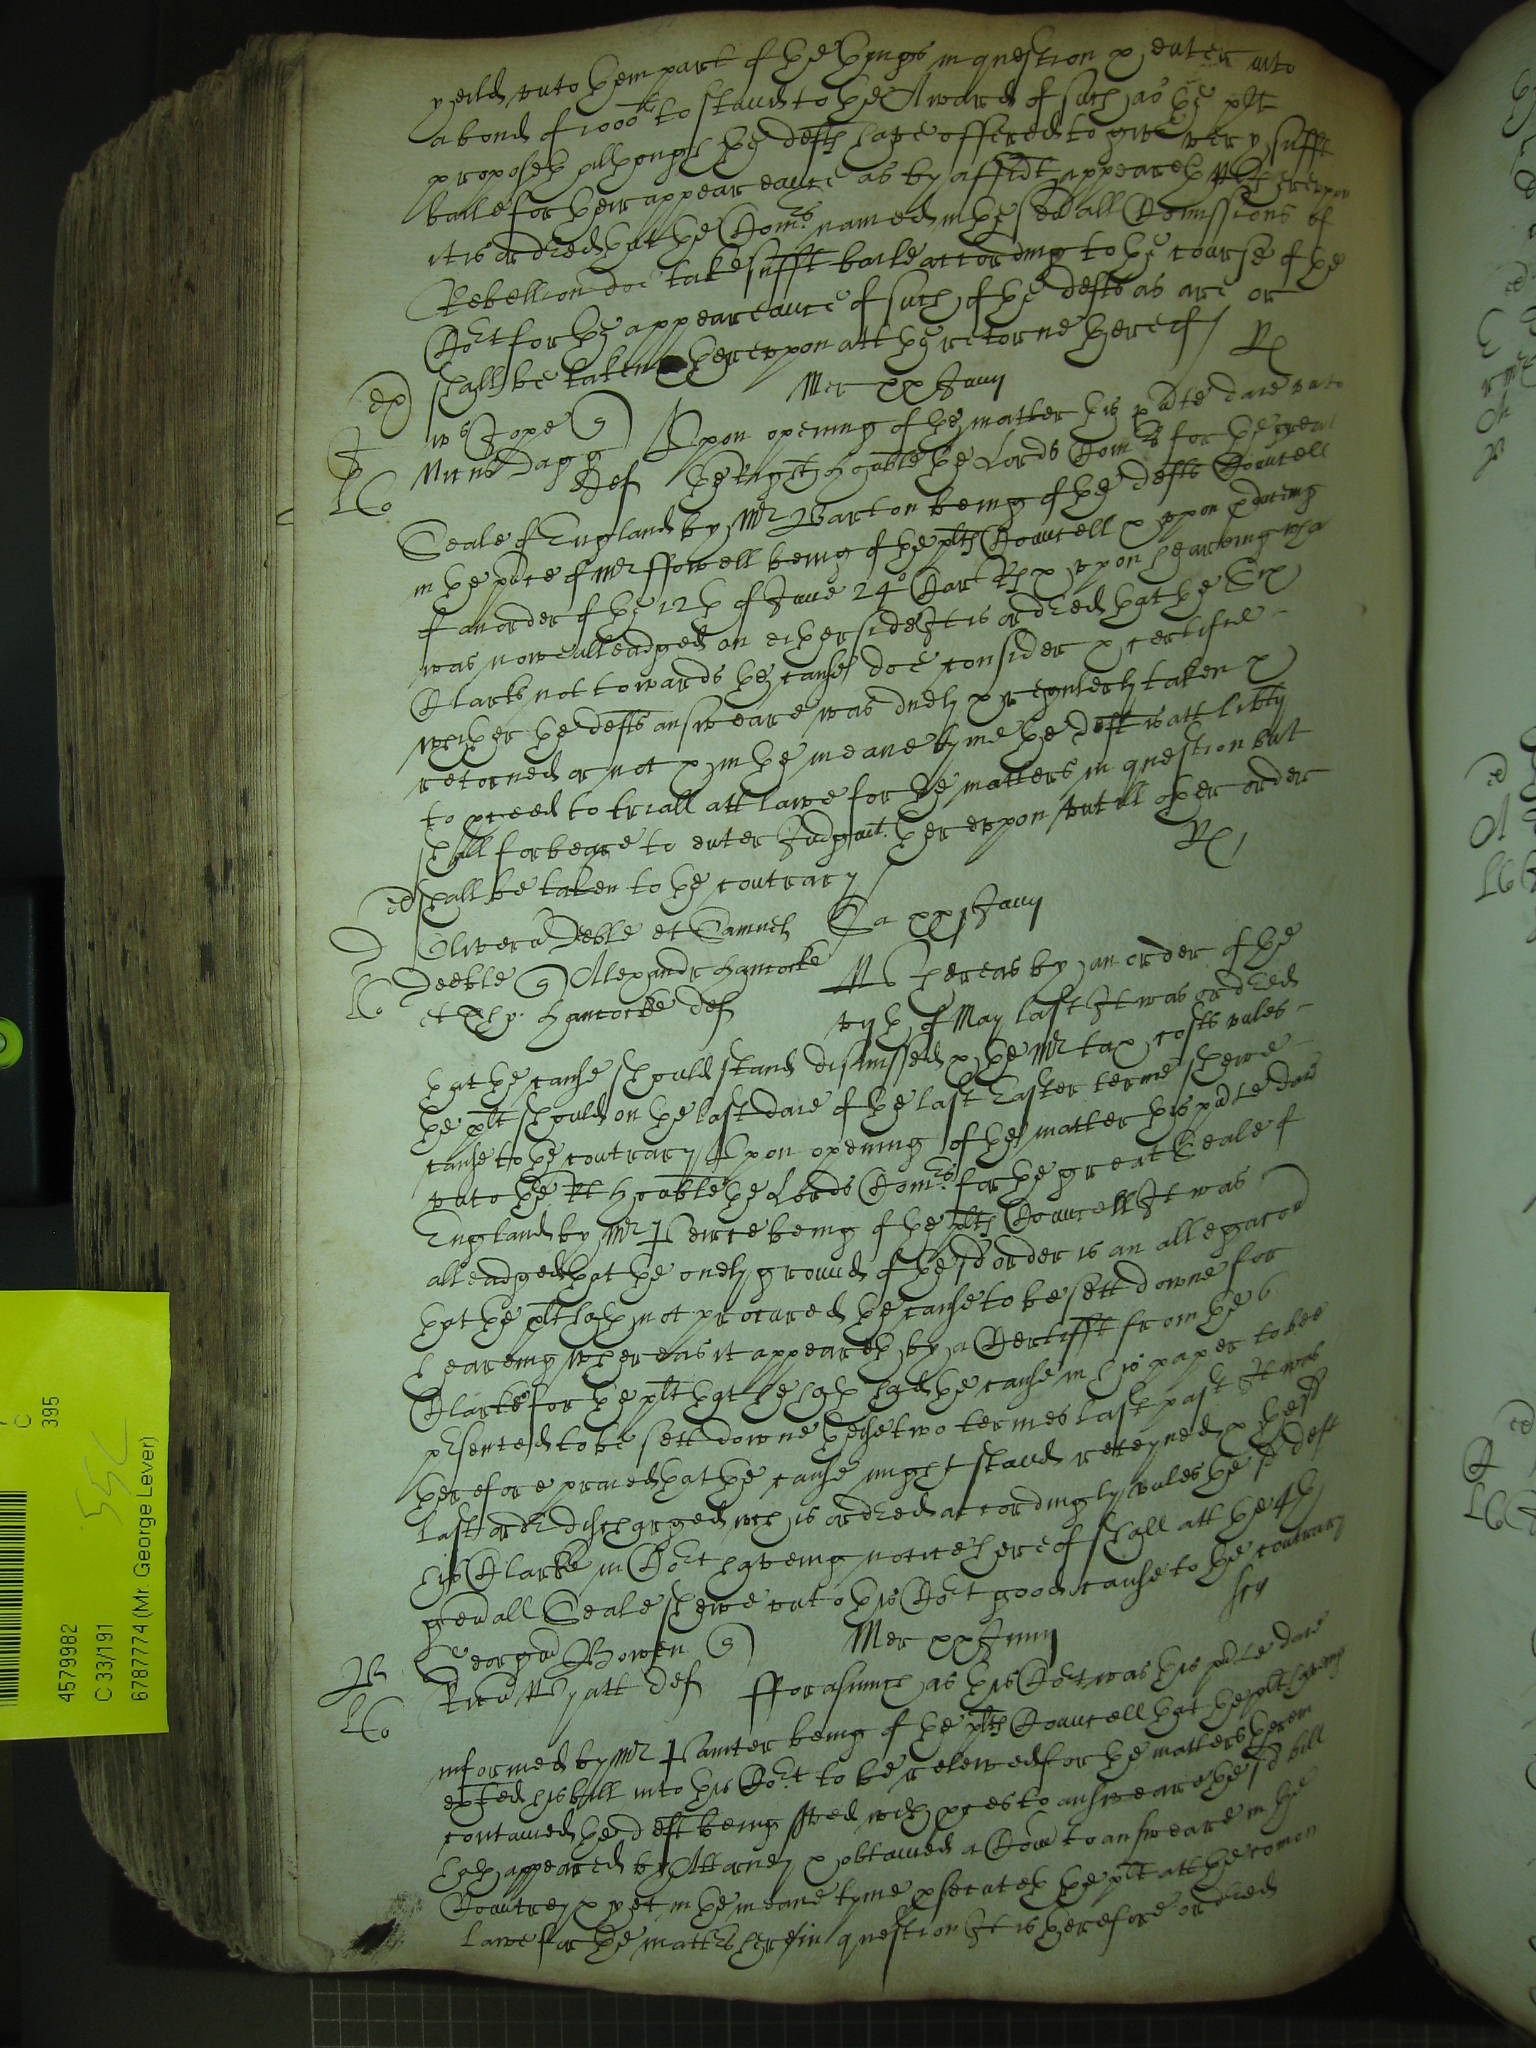 yeild unto them part of the things in question & enter into
a bond of 1000li to stand to the Award of such as the plt
proposeth although the defts have offered to give very sufft
baile for their appeareance as by affidt appeareth Whereupon
it is ordred that the Comrs named in the sevall Comissions of
Rebellion doe take sufft baile according to the course of the
Cort for the appeareance of such of the defts as are or
shall be taken thereupon att the retorne thereof
Mer xx Junij
Upon opening of the matter this pnte daie unto
Dagg def the Right Honoble the Lords Comrs for the great
Seale of England by Mr Barton being of the defts Councell
in the pnce of Mr ffowell being of the plts Councell & upon pduceing
of an order of the 12th of June 24o Car Rx & upon heareing wha
was now alleadged on either side It is ordred that the Six
Clarks not towards the cause doe consider & certifie
whether the defts answeare was duely & regulerly taken &
retorned or not & in the meane tyme the deft is att libty
to pceed to triall att lawe for the matters in question but
shall forbeare to enter Judgmt thereupon untill other order
shall be taken to the contrary
Sa xxj Junij
Deeble et Samuel
Deeble Alexandr Hancocke
et Hancocke def Whereas by an order of the
of May last It was ordred
that the cause should stand dismissed & the Mr tax costs unles
the plt should on the last daie of the last Easter terme shewe
cause to the contrary Upon opening of the matter this pnte daie
unto the Rt Honoble the Lords Comrs for the great Seale of
England by Mr Peirce being of the plts Councell It was
alleadged that the onely ground of the sd order is an allegacon
that the plt hath not procured the cause to be sett downe for
heareing whereas it appeareth by a Certifft from the 6
Clarke for the plt that he hath had the cause in his paper to bee
prsented to be sett downe these two termes last past It was
therefore praied that the cause might stand reteyned & the sd
last ordr discharged wch is ordred accordingly unles the sd deft
his Clarke in Cort haveing notice hereof shall att the 4th
genall Seale shewe unto this Cort good cause to the contrary
George Bowen Mer xx Junij
Wyatt def fforasmuch as this Cort was this pnte daie
informed by Mr Painter being of the plts Councell that the plt haveing
exhted his bill into this Cort to be releived for the matters therein
contained the deft being sved with pces to answeare the sd bill
hath appeared by Attorney & obtained a Comn to answeare in the
Countrey & yet in the meane tyme psecuteth the plt att the comon
lawe for the matters here in question It is therefore ordred
4579982
C 33/191
6787774 (Mr. George Lever)
C
395